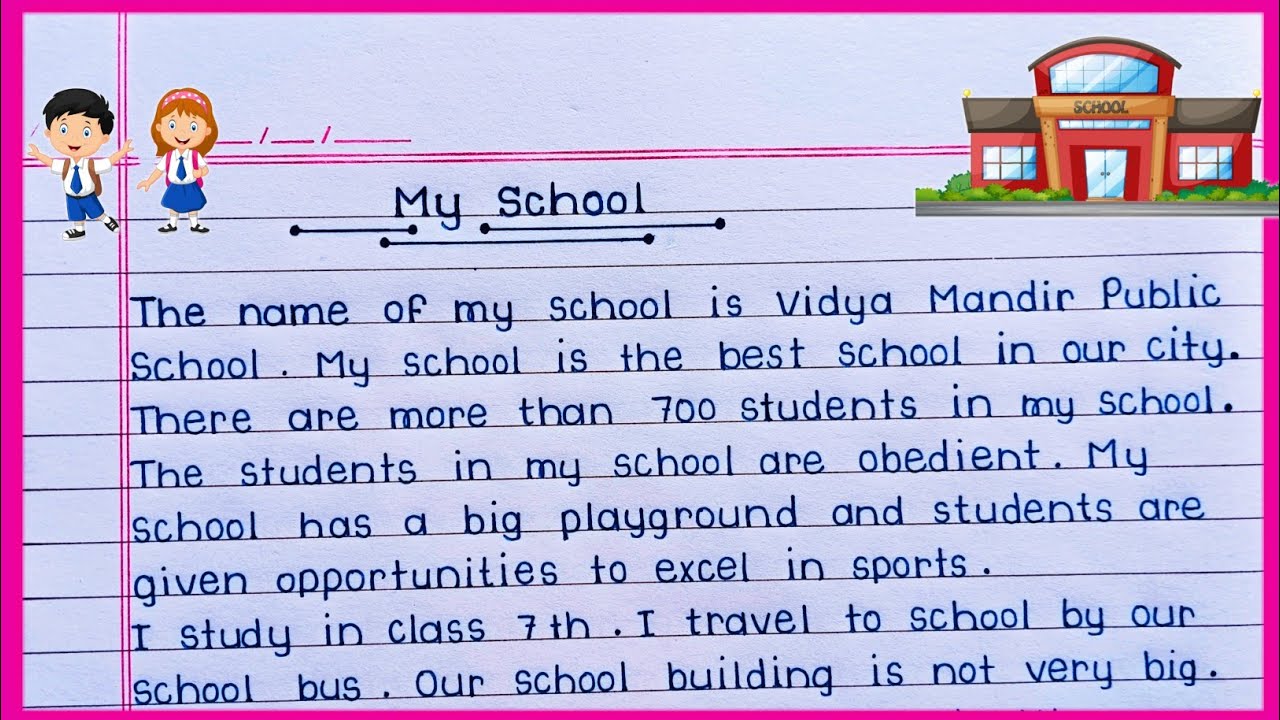 SCHOOL
My School
The name of my school is Vidya Mandir Public
School. My school is the best school in our city.
There are more than 700 students in my school.
The students in my school are obedient. My
school has a big playground and students are
given opportunities to excel in sports.
I study in class 7th. I travel to school by our
school bus. Our school building is not very big.